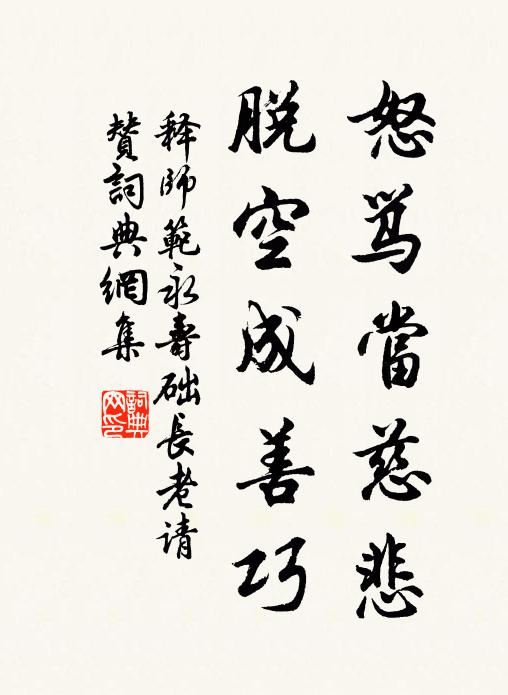 怒骂當慈悲
脱空成善巧
释師範永壽础長老请
赞詞典網集
詞典网印